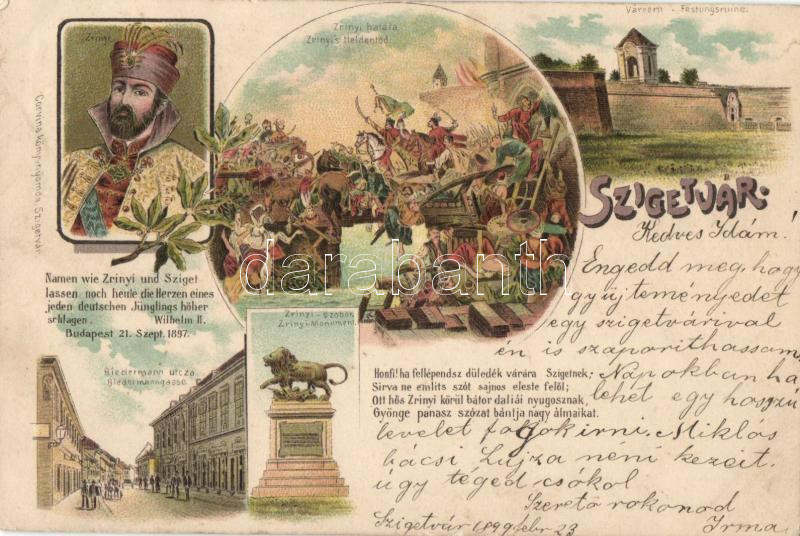 Zrínyi
Zrínyi halála
Zrinyi's Heldentod.
Várrom - Festungsruine.
Corvina könyvnyomda, Szigetvár
SZIGETVÁR.
Namen wie Zrinyi und Sziget
lassen noch heute die Herzen eines
jeden deutschen Jünglings höher
schlagen. Wilhelm II.
Budapest 21. Szept. 1897.
Biedermann utcza.
Biedermanngasse.
Zrinyi-szobor.
Zrinyi-Monument.
Honfi! ha fellépendsz düledék várára Szigetnek;
Sirva ne emlits szót sajnos eleste felöl;
Ott hős Zrinyi körül bátor daliái nyugosznak,
Gyönge panasz szózat bántja nagy álmaikat.
Kedves Idám!
Engedd meg, hogy
gyüjteményedet
egy szigetvárival
én is szaporithassam,
Napokban ha
lehet egy hosszú
levelet fogok irni. Miklós
bácsi Lujza néni kezeit
úgy téged csókol
Szerető rokonod
Szigetvár 1899 febr 23 Irma
darabanth